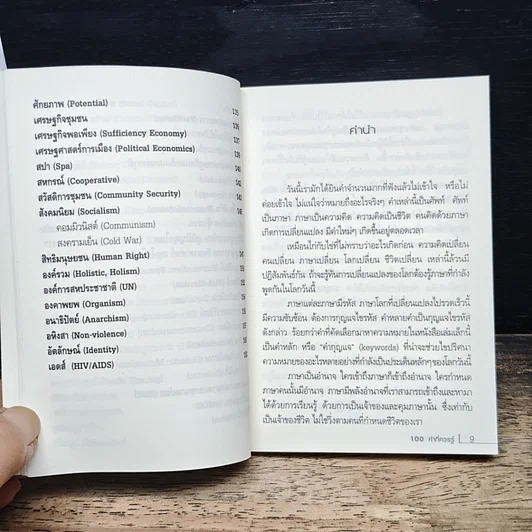 ศักยภาพ (Potential)
เศรษฐกิจชุมชน
เศรษฐกิจพอเพียง (Sufficiency Economy)
เศรษฐศาสตร์การเมือง (Political Economics)
สปา (Spa)
สหกรณ์ (Cooperative)
สวัสดิการชุมชน (Community Security)
สังคมนิยม (Socialism)
คอมมิวนิสต์ (Communism)
สงครามเย็น (Cold War)
สิทธิมนุษยชน (Human Right)
องค์รวม (Holistic, Holism)
องค์การสหประชาชาติ (UN)
องคาพยพ (Organism)
อนาธิปัตย์ (Anarchism)
อหิงสา (Non-violence)
อัตลักษณ์ (Identity)
เอดส์ (HIV/AIDS)
คำนำ
วันนี้เรามักได้ยินคำจำนวนมากที่ฟังแล้วไม่เข้าใจ หรือไม่
ค่อยเข้าใจ ไม่แน่ใจว่าหมายถึงอะไรจริงๆ คำเหล่านี้เป็นศัพท์ ศัพท์
เป็นภาษา ภาษาเป็นความคิด ความคิดเป็นชีวิต คนคิดด้วยภาษา
เกิดการเปลี่ยนแปลง มีคำใหม่ๆ เกิดขึ้นอยู่ตลอดเวลา
เหมือนไก่กับไข่ที่ไม่ทราบว่าอะไรเกิดก่อน ความคิดเปลี่ยน
คนเปลี่ยน ภาษาเปลี่ยน โลกเปลี่ยน ชีวิตเปลี่ยน เหล่านี้ล้วนมี
ปฏิสัมพันธ์กัน ถ้าจะรู้ทันการเปลี่ยนแปลงของโลกต้องรู้ภาษาที่กำลัง
พูดกันในโลกวันนี้
ภาษาแต่ละภาษามีรหัส ภาษาโลกที่เปลี่ยนแปลงไปรวดเร็วนี้
มีความซับซ้อน ต้องการกุญแจไขรหัส คำหลายคำเป็นกุญแจไขรหัส
ดังกล่าว ร้อยกว่าคำที่คัดเลือกมาหาความหมายในหนังสือเล่มเล็กนี้
เป็นคำหลัก หรือ "คำกุญแจ" (keywords) ที่น่าจะช่วยไขปริศนา
ความหมายของอะไรหลายอย่างที่กำลังเป็นประเด็นหลักๆของโลกวันนี้
ภาษาเป็นอำนาจ ใครเข้าถึงภาษาก็เข้าถึงอำนาจ ใครกำหนด
ภาษาคนนั้นมีอำนาจ ภาษามีพลังอำนาจที่เราสามารถเข้าถึงและทำมา
ได้ด้วยการเรียนรู้ ด้วยการเป็นเจ้าของและคุมภาษานั้น ซึ่งเท่ากับ
เป็นเจ้าของชีวิต ไม่ใช่วิ่งตามคนที่กำหนดชีวิตของเรา
100 คำที่ควรรู้ | 9